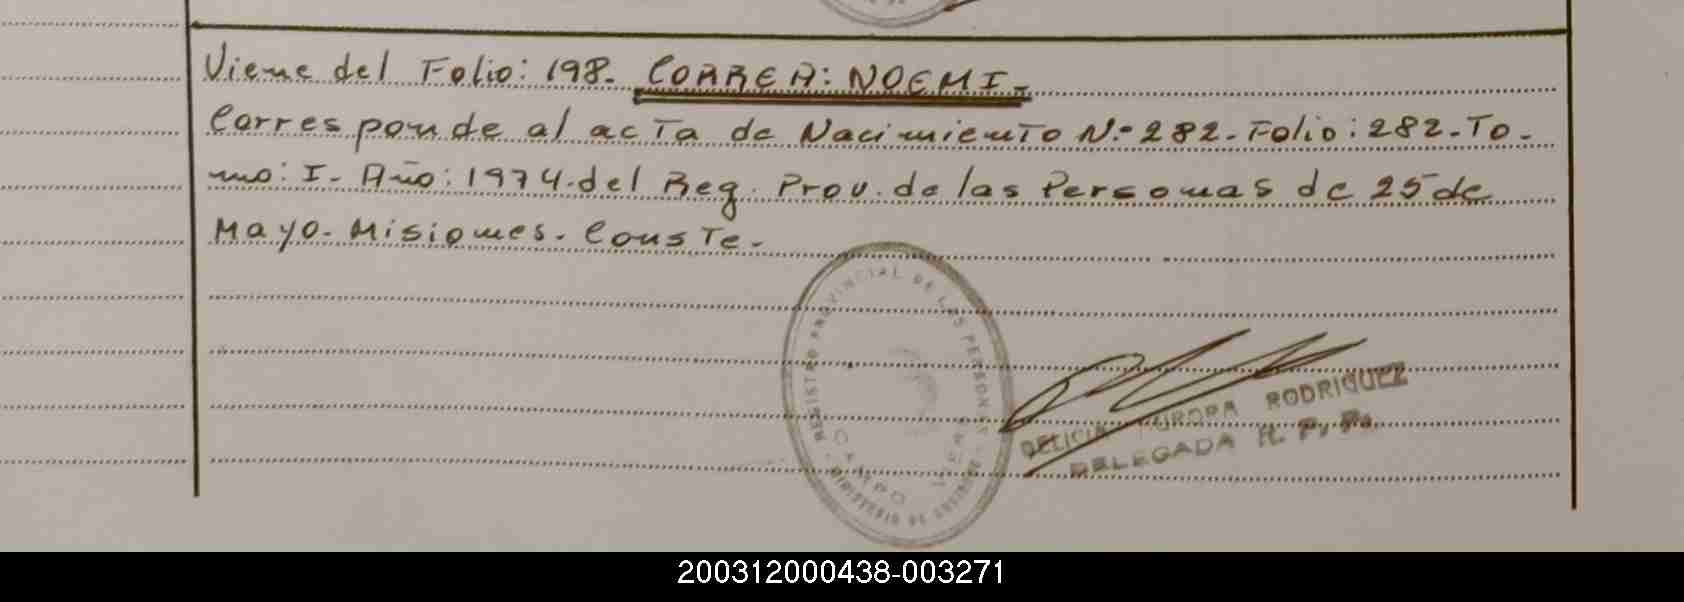 Viene del Folio: 198. CORREA: NOEMI.-
Corresponde al acta de Nacimiento N.º 282. Folio: 282. To-
mo: I. Año: 1974. del Reg. Prov. de las Personas de 25 de
Mayo. Misiones. Conste.-
REGISTRO PROVINCIAL DE LAS PERSONAS
CAMPO
DELICIA AURORA RODRIGUEZ
DELEGADA R. P. P.
200312000438-003271